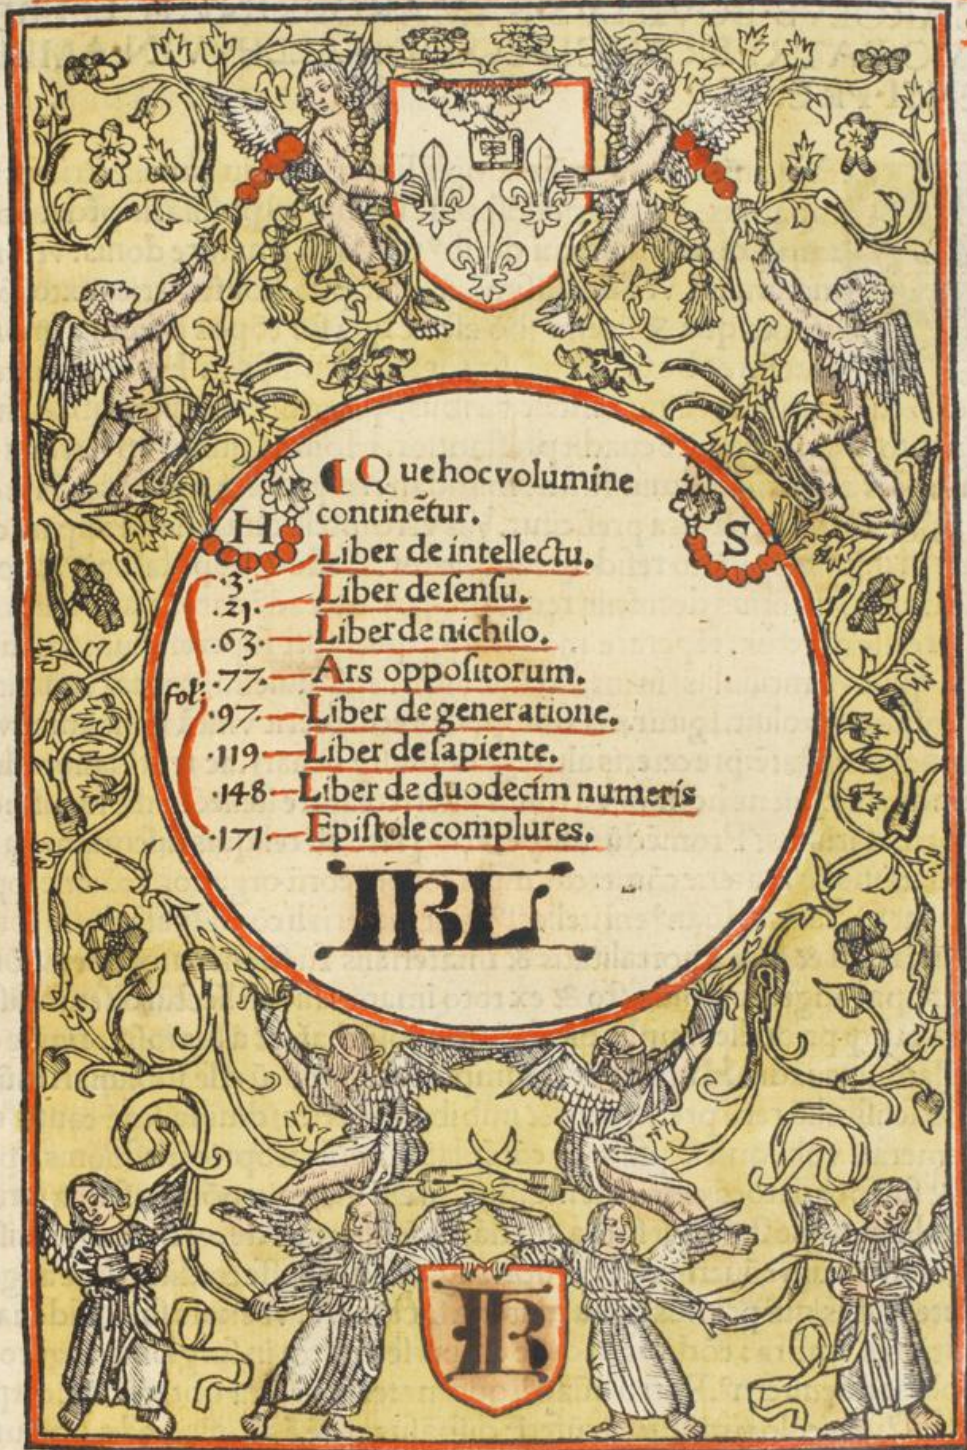 ¶ Que hoc volumine
continēt̃ur.
H S
Liber de intellectu.
·3· Liber de sensu.
·21·
·63· Liber de nichilo.
·77· Ars oppositorum.
fol: ·97· Liber de generatione.
·119 Liber de sapiente.
·148 Liber de duodecim numeris
·171· Epistole complures.
IBL
IB